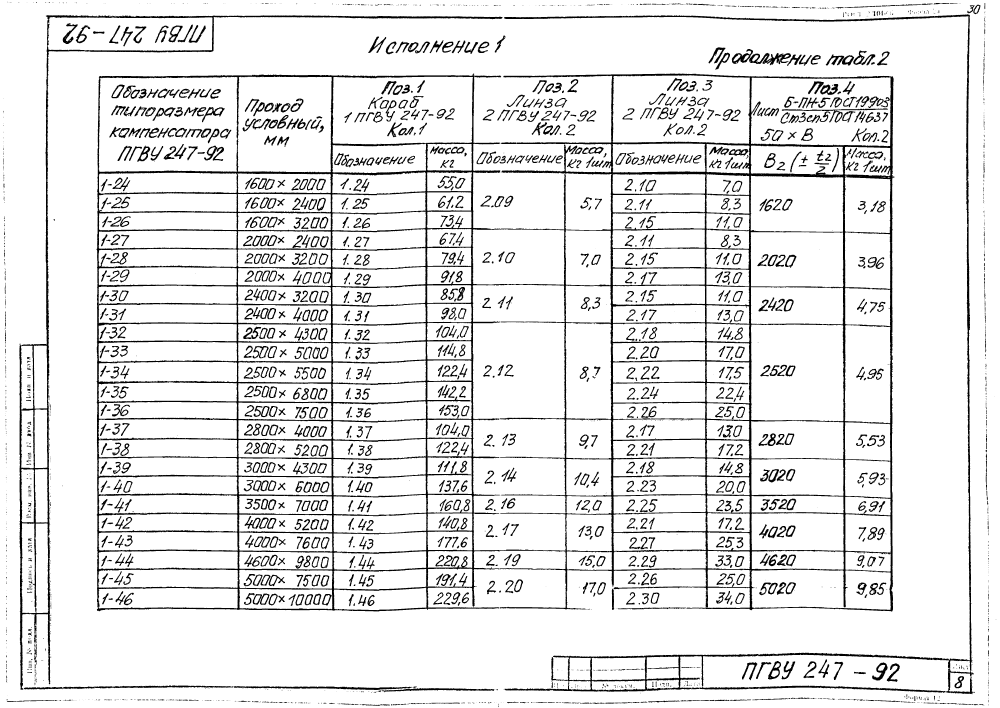 30
ПГВУ 247-92
Исполнение 1
Продолжение табл.2
Обозначение типоразмера кампенсатора ПГВУ 247-92
Проход условный, мм
Поз.1 Караб 1 ПГВУ 247-92 Кол.1
Поз.2 Линза 2 ПГВУ 247-92 Кол.2
Поз.3 Линза 2 ПГВУ 247-92 Кол.2
Поз.4 Лист Б-ПН-5 ГОСТ19903 Ст3сп5ГОСТ14637 50 × В Кол.2
Обозначение Масса, кг Обозначение Масса, кг 1шт Обозначение Масса, кг 1шт В2 (± t2/2) Масса, кг 1шт
1-24 1600×2000 1.24 55,0 2.09 5,7 2.10 7,0 1620 3,18
1-25 1600×2400 1.25 61.2 2.11 8,3
1-26 1600×3200 1.26 73,4 2.15 11,0
1-27 2000×2400 1.27 67.4 2.10 7,0 2.11 8,3 2020 3,96
1-28 2000×3200 1.28 79,4 2.15 11,0
1-29 2000×4000 1.29 91,8 2.17 13,0
1-30 2400×3200 1.30 85,8 2.11 8,3 2.15 11,0 2420 4,75
1-31 2400×4000 1.31 98,0 2.17 13,0
1-32 2500×4300 1.32 104,0 2.12 8,7 2.18 14,8 2520 4,95
1-33 2500×5000 1.33 114,8 2.20 17,0
1-34 2500×5500 1.34 122,4 2.22 17,5
1-35 2500×6800 1.35 142,2 2.24 22,4
1-36 2500×7500 1.36 153,0 2.26 25,0
1-37 2800×4000 1.37 104,0 2.13 9,7 2.17 13,0 2820 5,53
1-38 2800×5200 1.38 122,4 2.21 17,2
1-39 3000×4300 1.39 111,8 2.14 10,4 2.18 14,8 3020 5,93
1-40 3000×6000 1.40 137,6 2.23 20,0
1-41 3500×7000 1.41 160,8 2.16 12,0 2.25 23,5 3520 6,91
1-42 4000×5200 1.42 140,8 2.17 13,0 2.21 17,2 4020 7,89
1-43 4000×7600 1.43 177,6 2.27 25,3
1-44 4600×9800 1.44 220,8 2.19 15,0 2.29 33,0 4620 9,07
1-45 5000×7500 1.45 191,4 2.20 17,0 2.26 25,0 5020 9,85
1-46 5000×10000 1.46 229,6 2.30 34,0
ПГВУ 247-92
8